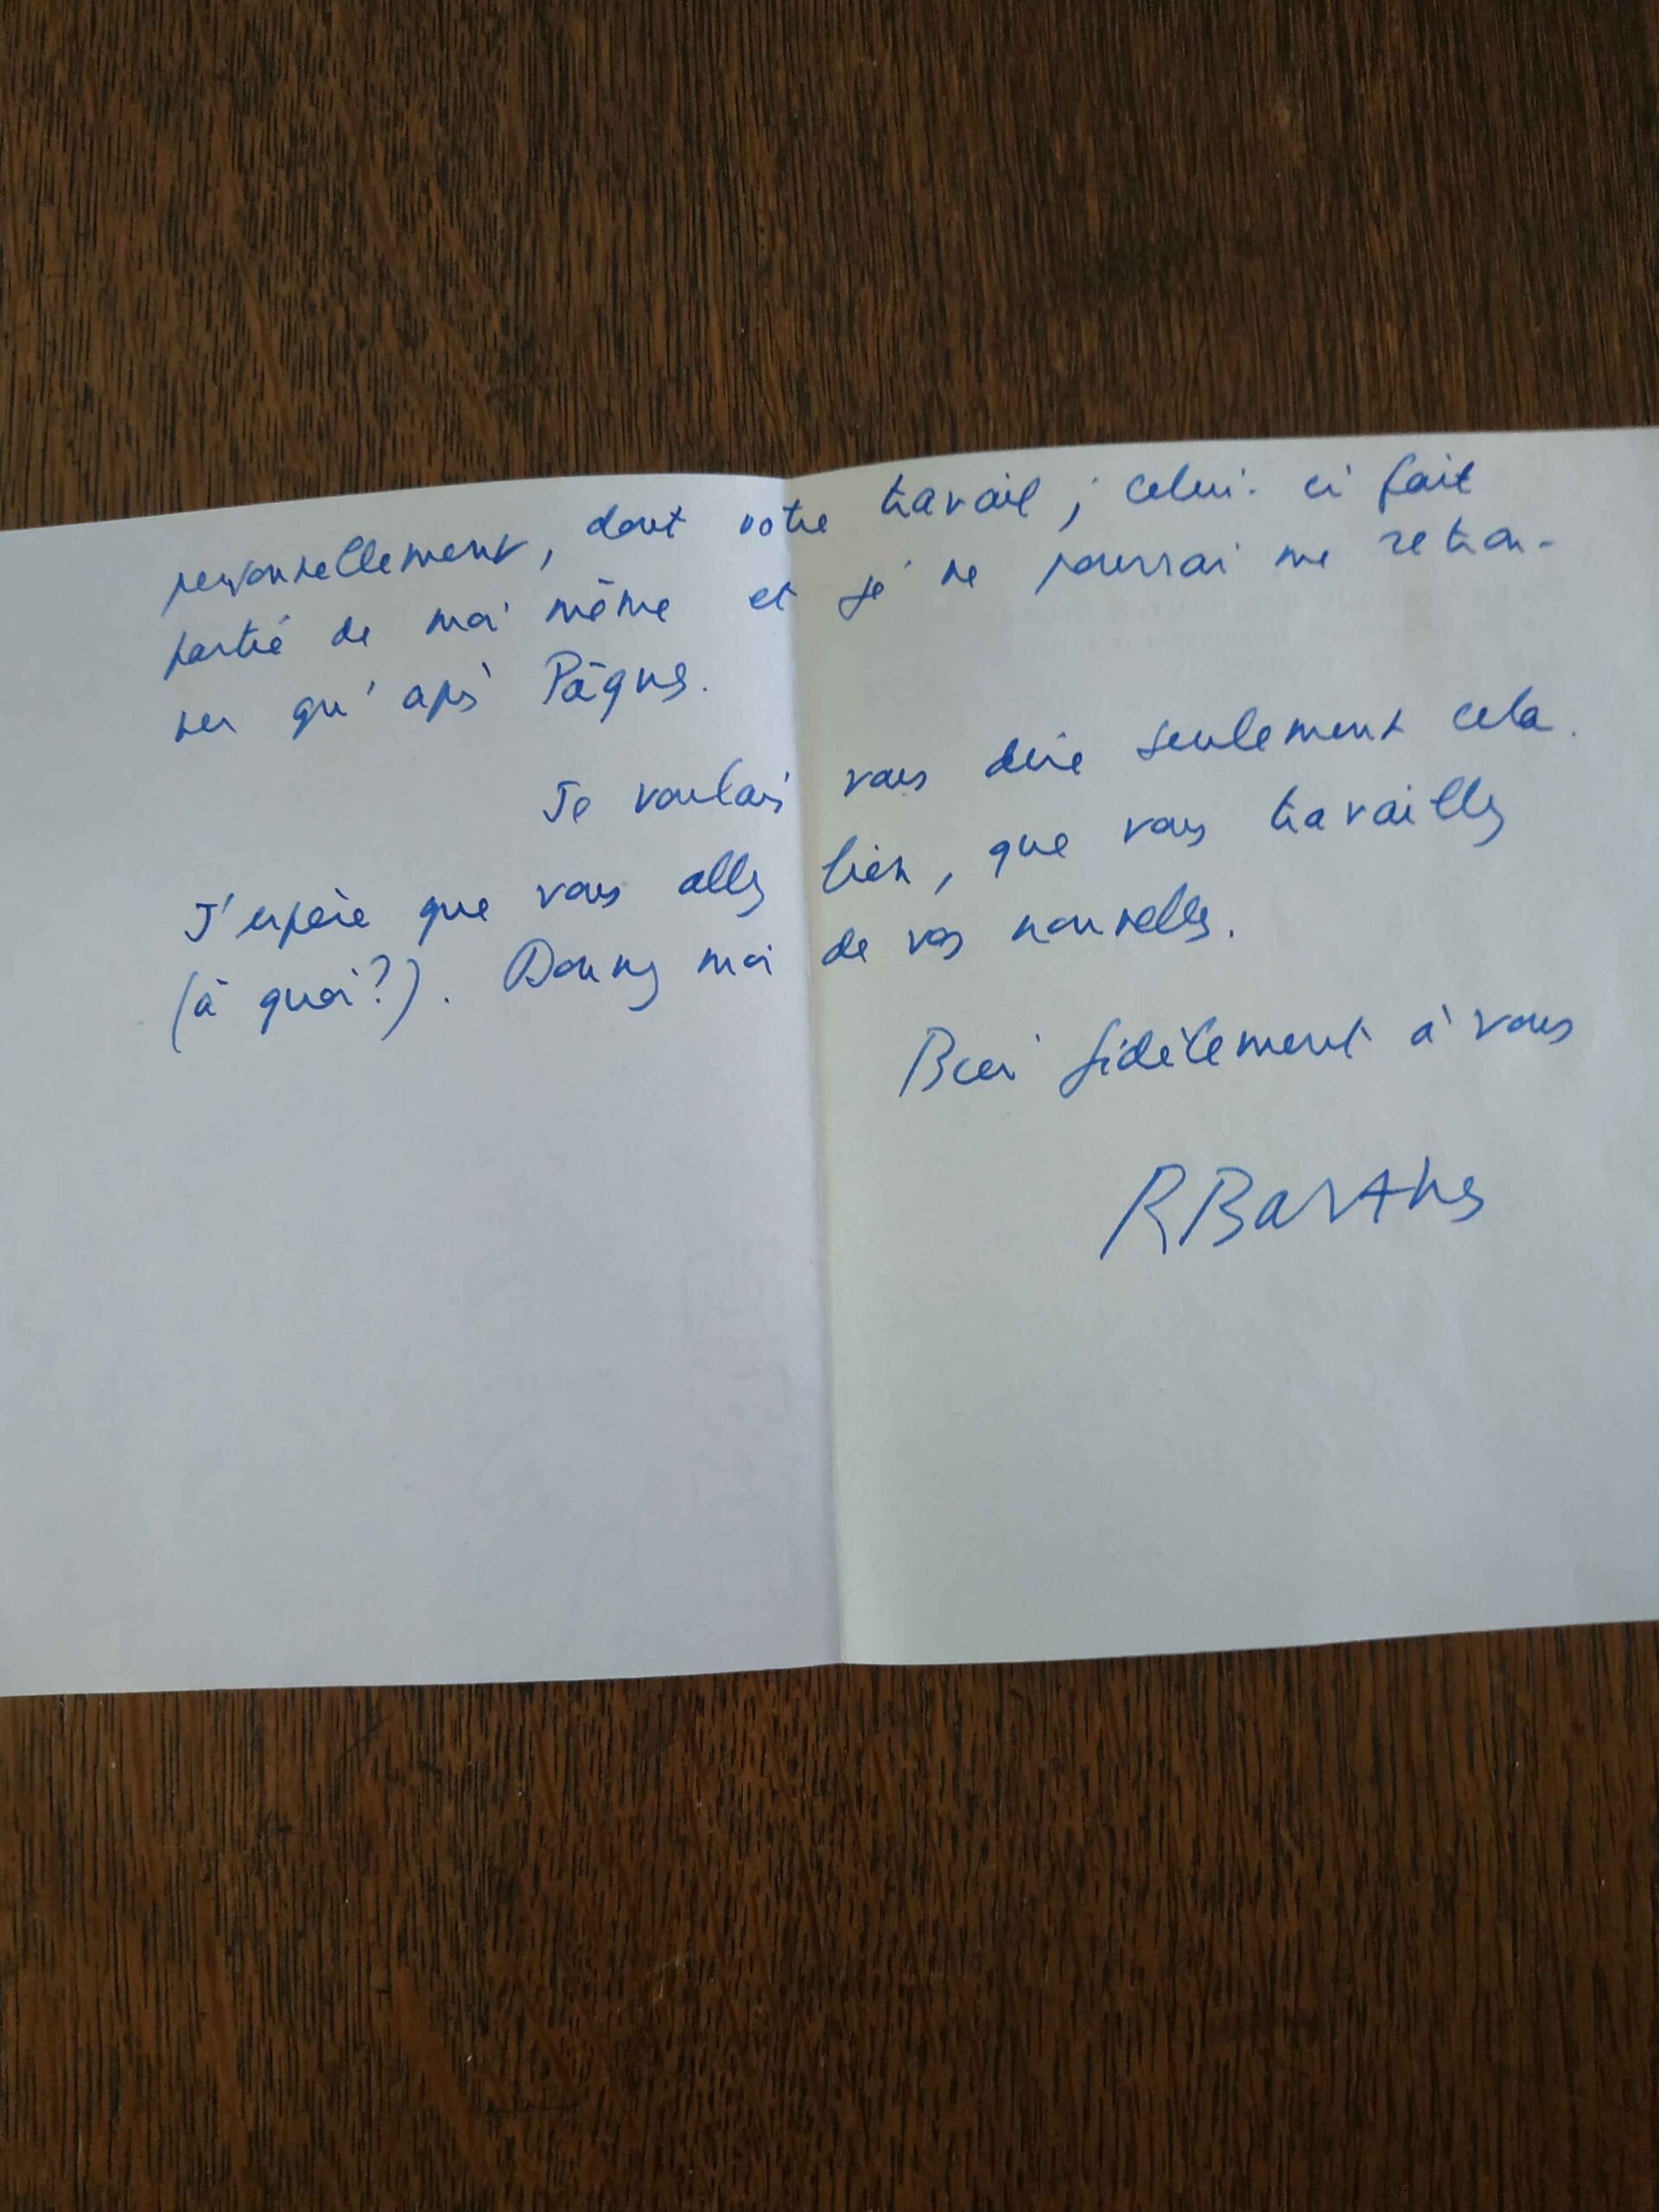 personnellement, dont votre travail ; celui-ci fait
partie de moi même et je ne pourrai me retrou-
ver qu'après Pâques.
Je voulais vous dire seulement cela.
J'espère que vous allez bien, que vous travaillez
(à quoi?). Donnez moi de vos nouvelles.
Bien fidèlement à vous
RBarthes